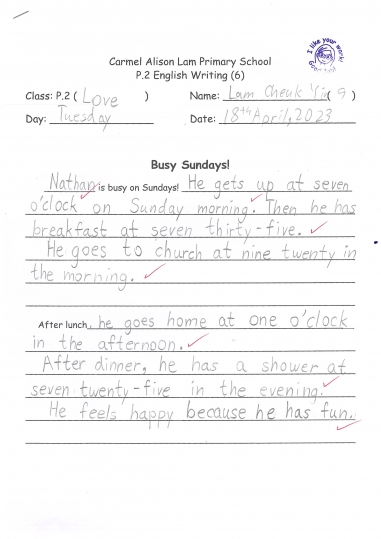 I like your work!
Carmel Alison Lam Primary School
P.2 English Writing (6)
Class: P.2 ( Love ) Name: Lam Cheuk Yin ( 9 )
Day: Tuesday Date: 18th April, 2023
Busy Sundays!
Nathan is busy on Sundays! He gets up at seven
o'clock on Sunday morning. Then he has
breakfast at seven thirty-five.
He goes to church at nine twenty in
the morning.
After lunch, he goes home at one o'clock
in the afternoon.
After dinner, he has a shower at
seven twenty-five in the evening.
He feels happy because he has fun.